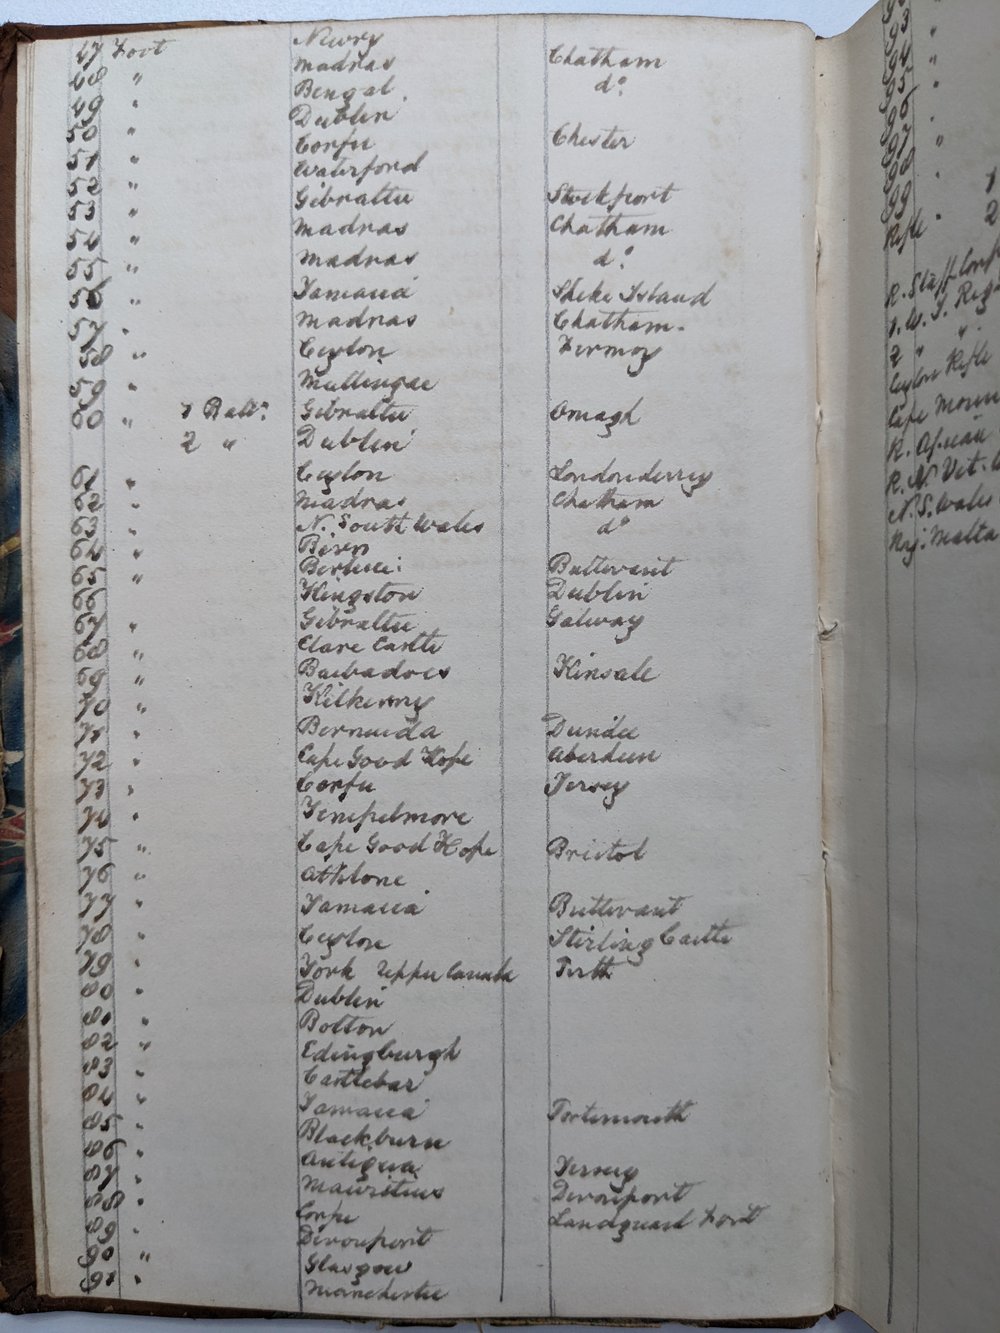 47 Foot Newry
48 " Madras Chatham
49 " Bengal do
50 " Dublin
51 " Corfu Chester
52 " Waterford
53 " Gibraltar Stockport
54 " Madras Chatham
55 " Madras do
56 " Jamaica Spike Island
57 " Madras Chatham.
58 " Ceylon Fermoy
59 " Mullingar
60 " 1 Batt: Gibraltar Omagh
2 " Dublin
61 " Ceylon Londonderry
62 " Madras Chatham
63 " N. South Wales do
64 " Birr
65 " Berbice: Buttevant
66 Kingston Dublin
67 " Gibraltar Galway
68 " Clare Castle
69 " Barbadoes Kinsale
70 " Kilkenny
71 " Bermuda Dundee
72 " Cape Good Hope Aberdeen
73 " Corfu Jersey
74 " Templemore
75 " Cape Good Hope Bristol
76 " Athlone
77 " Jamaica Buttevant
78 " Ceylon Stirling Castle
79 " York Upper Canada Perth
80 Dublin
81 " Bolton
82 " Edingburgh
83 " Castlebar
84 " Jamaica Portsmouth
85 " Blackburn
86 " Antigua Jersey
87 " Mauritius Devonport
88 " Corfu Landguard Fort
89 " Devonport
90 " Glasgow
91 " Manchester
93
94 "
95
96
97 "
98
99 " 1
Rifle " 2
R. Staff Corps
1. W. I. Reg
2 " "
Ceylon Rifle
Cape Moun
R. African
R. N. Vet.
N. S. Wales
Malta